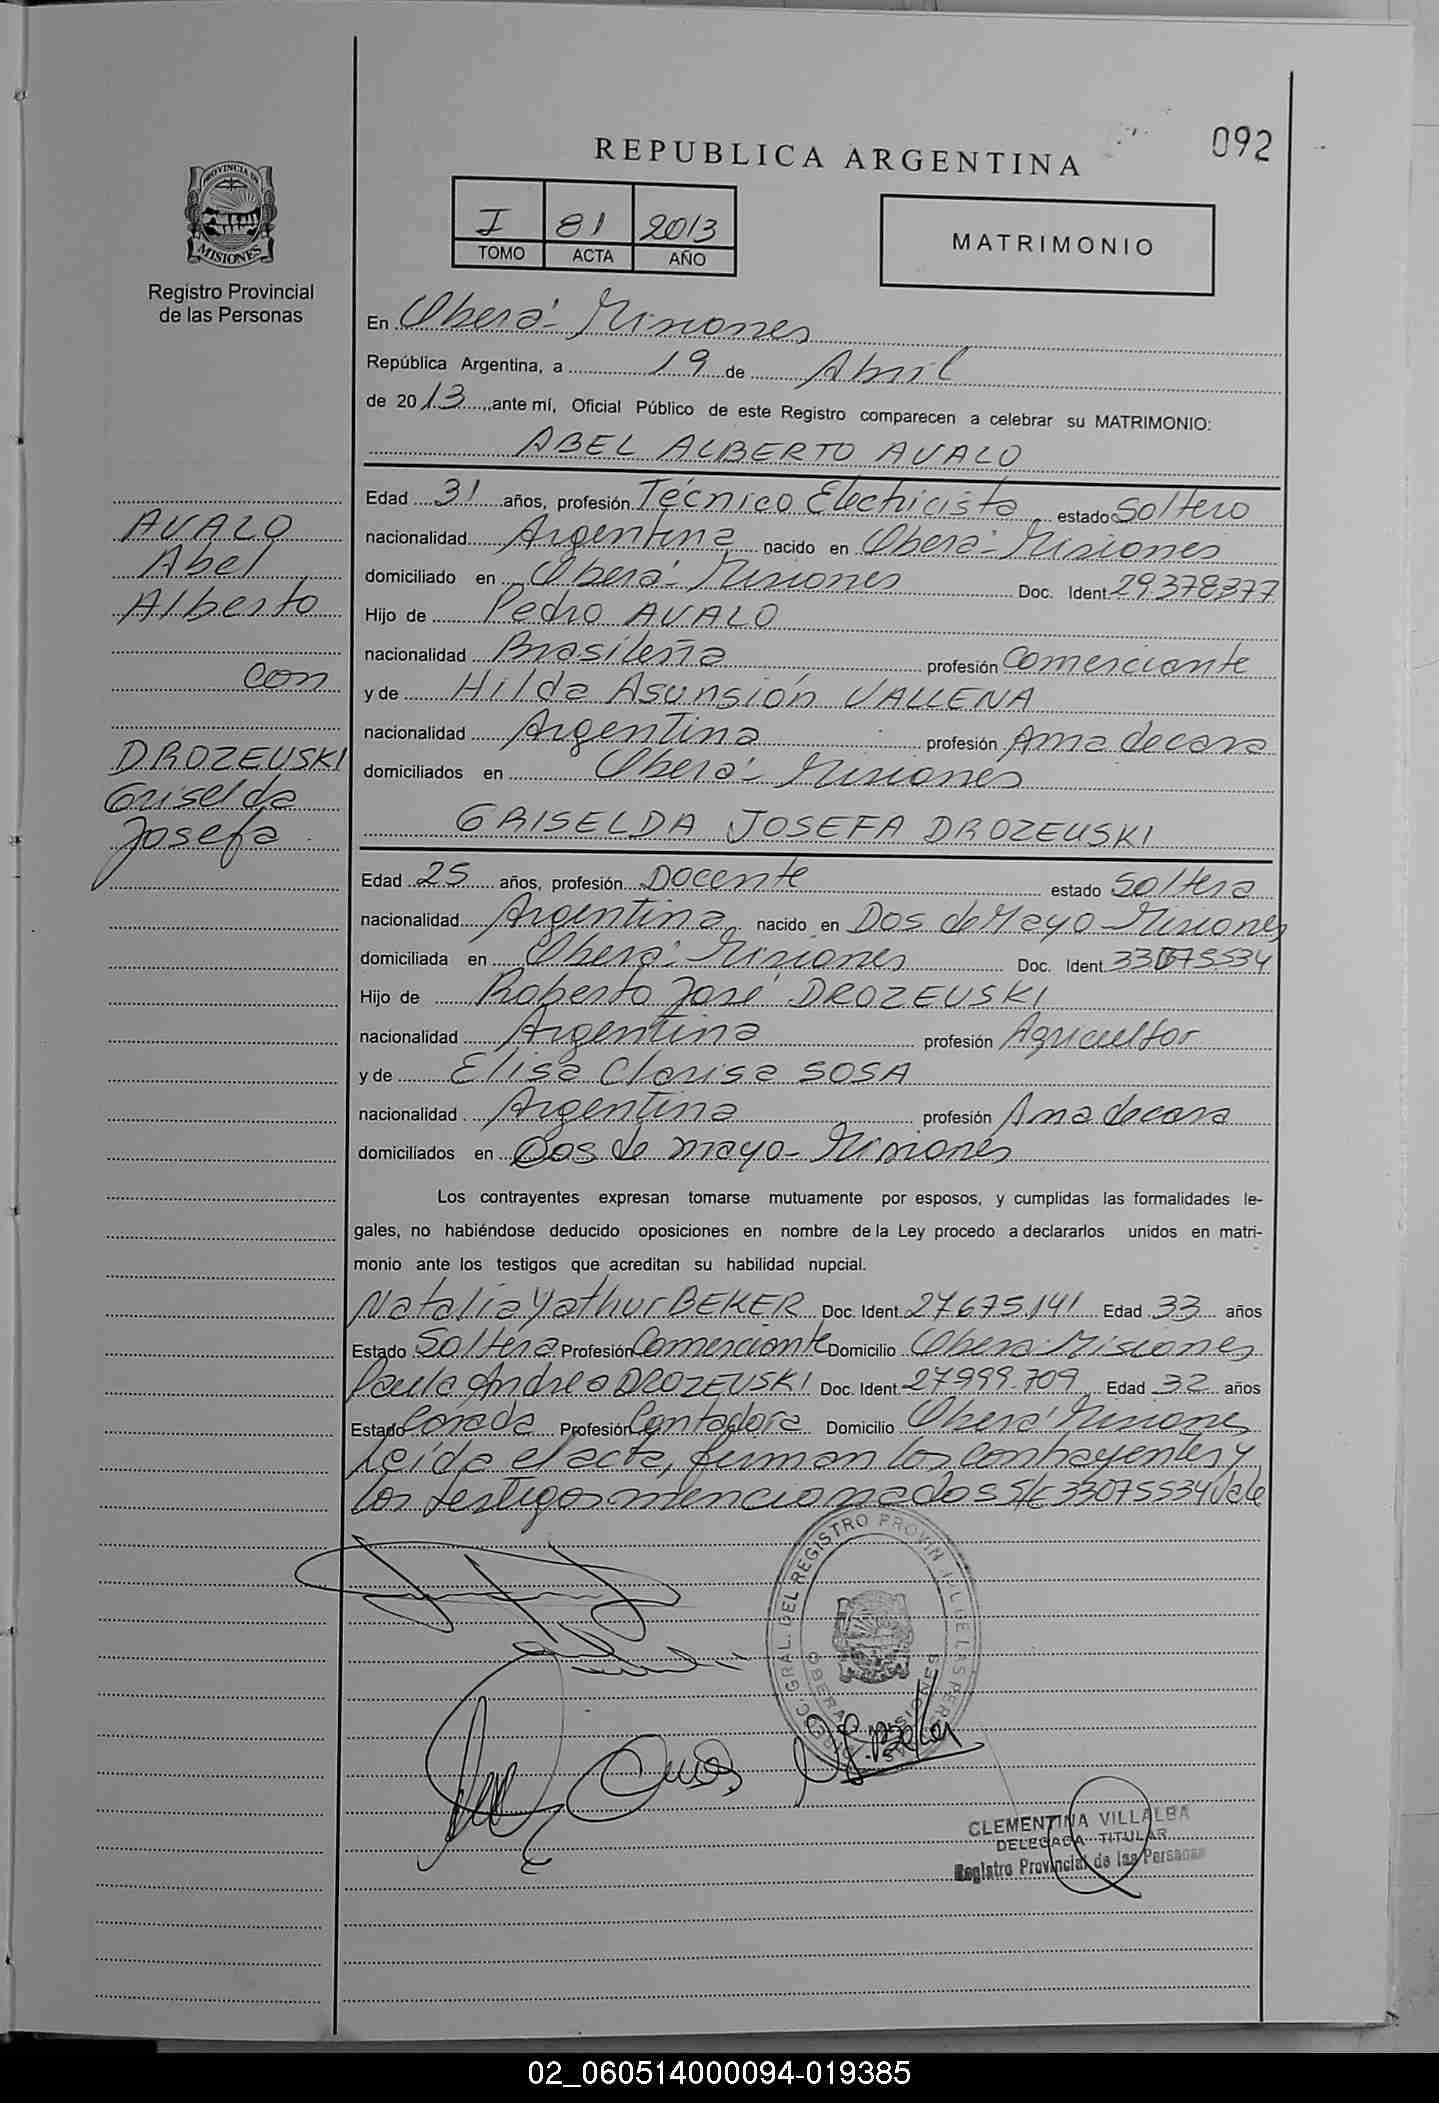 092
REPUBLICA ARGENTINA
PROVINCIA DE
MISIONES
Registro Provincial
de las Personas
I 81 2013
TOMO ACTA AÑO
MATRIMONIO
En Oberá - Misiones
República Argentina, a 19 de Abril
de 2013, ante mí, Oficial Público de este Registro comparecen a celebrar su MATRIMONIO:
ABEL ALBERTO AVALO
AVALO
Abel
Alberto
con
DROZEUSKI
Griselda
Josefa
Edad 31 años, profesión Técnico Electricista estado Soltero
nacionalidad Argentina nacido en Oberá - Misiones
domiciliado en Oberá - Misiones Doc. Ident 29.378.377
Hijo de Pedro AVALO
nacionalidad Brasileña profesión Comerciante
y de Hilda Asunsión VALLENA
nacionalidad Argentina profesión Ama de casa
domiciliados en Oberá - Misiones
GRISELDA JOSEFA DROZEUSKI
Edad 25 años, profesión Docente estado Soltera
nacionalidad Argentina nacido en Dos de Mayo - Misiones
domiciliada en Oberá - Misiones Doc. Ident
Hijo de Roberto José DROZEUSKI
nacionalidad Argentina profesión Agricultor
y de Elisa Clarisa SOSA
nacionalidad Argentina profesión Ama de casa
domiciliados en Dos de mayo - Misiones
Los contrayentes expresan tomarse mutuamente por esposos, y cumplidas las formalidades le-
gales, no habiéndose deducido oposiciones en nombre de la Ley procedo a declararlos unidos en matri-
monio ante los testigos que acreditan su habilidad nupcial.
Natalia Yathur BEKER Doc. Ident. 27.675.141 Edad 33 años
Estado Soltera Profesión Comerciante Domicilio Oberá - Misiones
Paula Andrea DROZEUSKI Doc. Ident. 27.999.709 Edad 32 años
Estado Casada Profesión Contadora Domicilio Oberá Misiones
Leída el acta, firman los contrayentes y
los testigos mencionados S/R 33075534 Vale
GRAL. DEL REGISTRO PROVIN DE LAS PERS
OBERA MISIONES
CLEMENTINA VILLALBA
DELEGADA TITULAR
Registro Provincial de las Personas
02_060514000094-019385